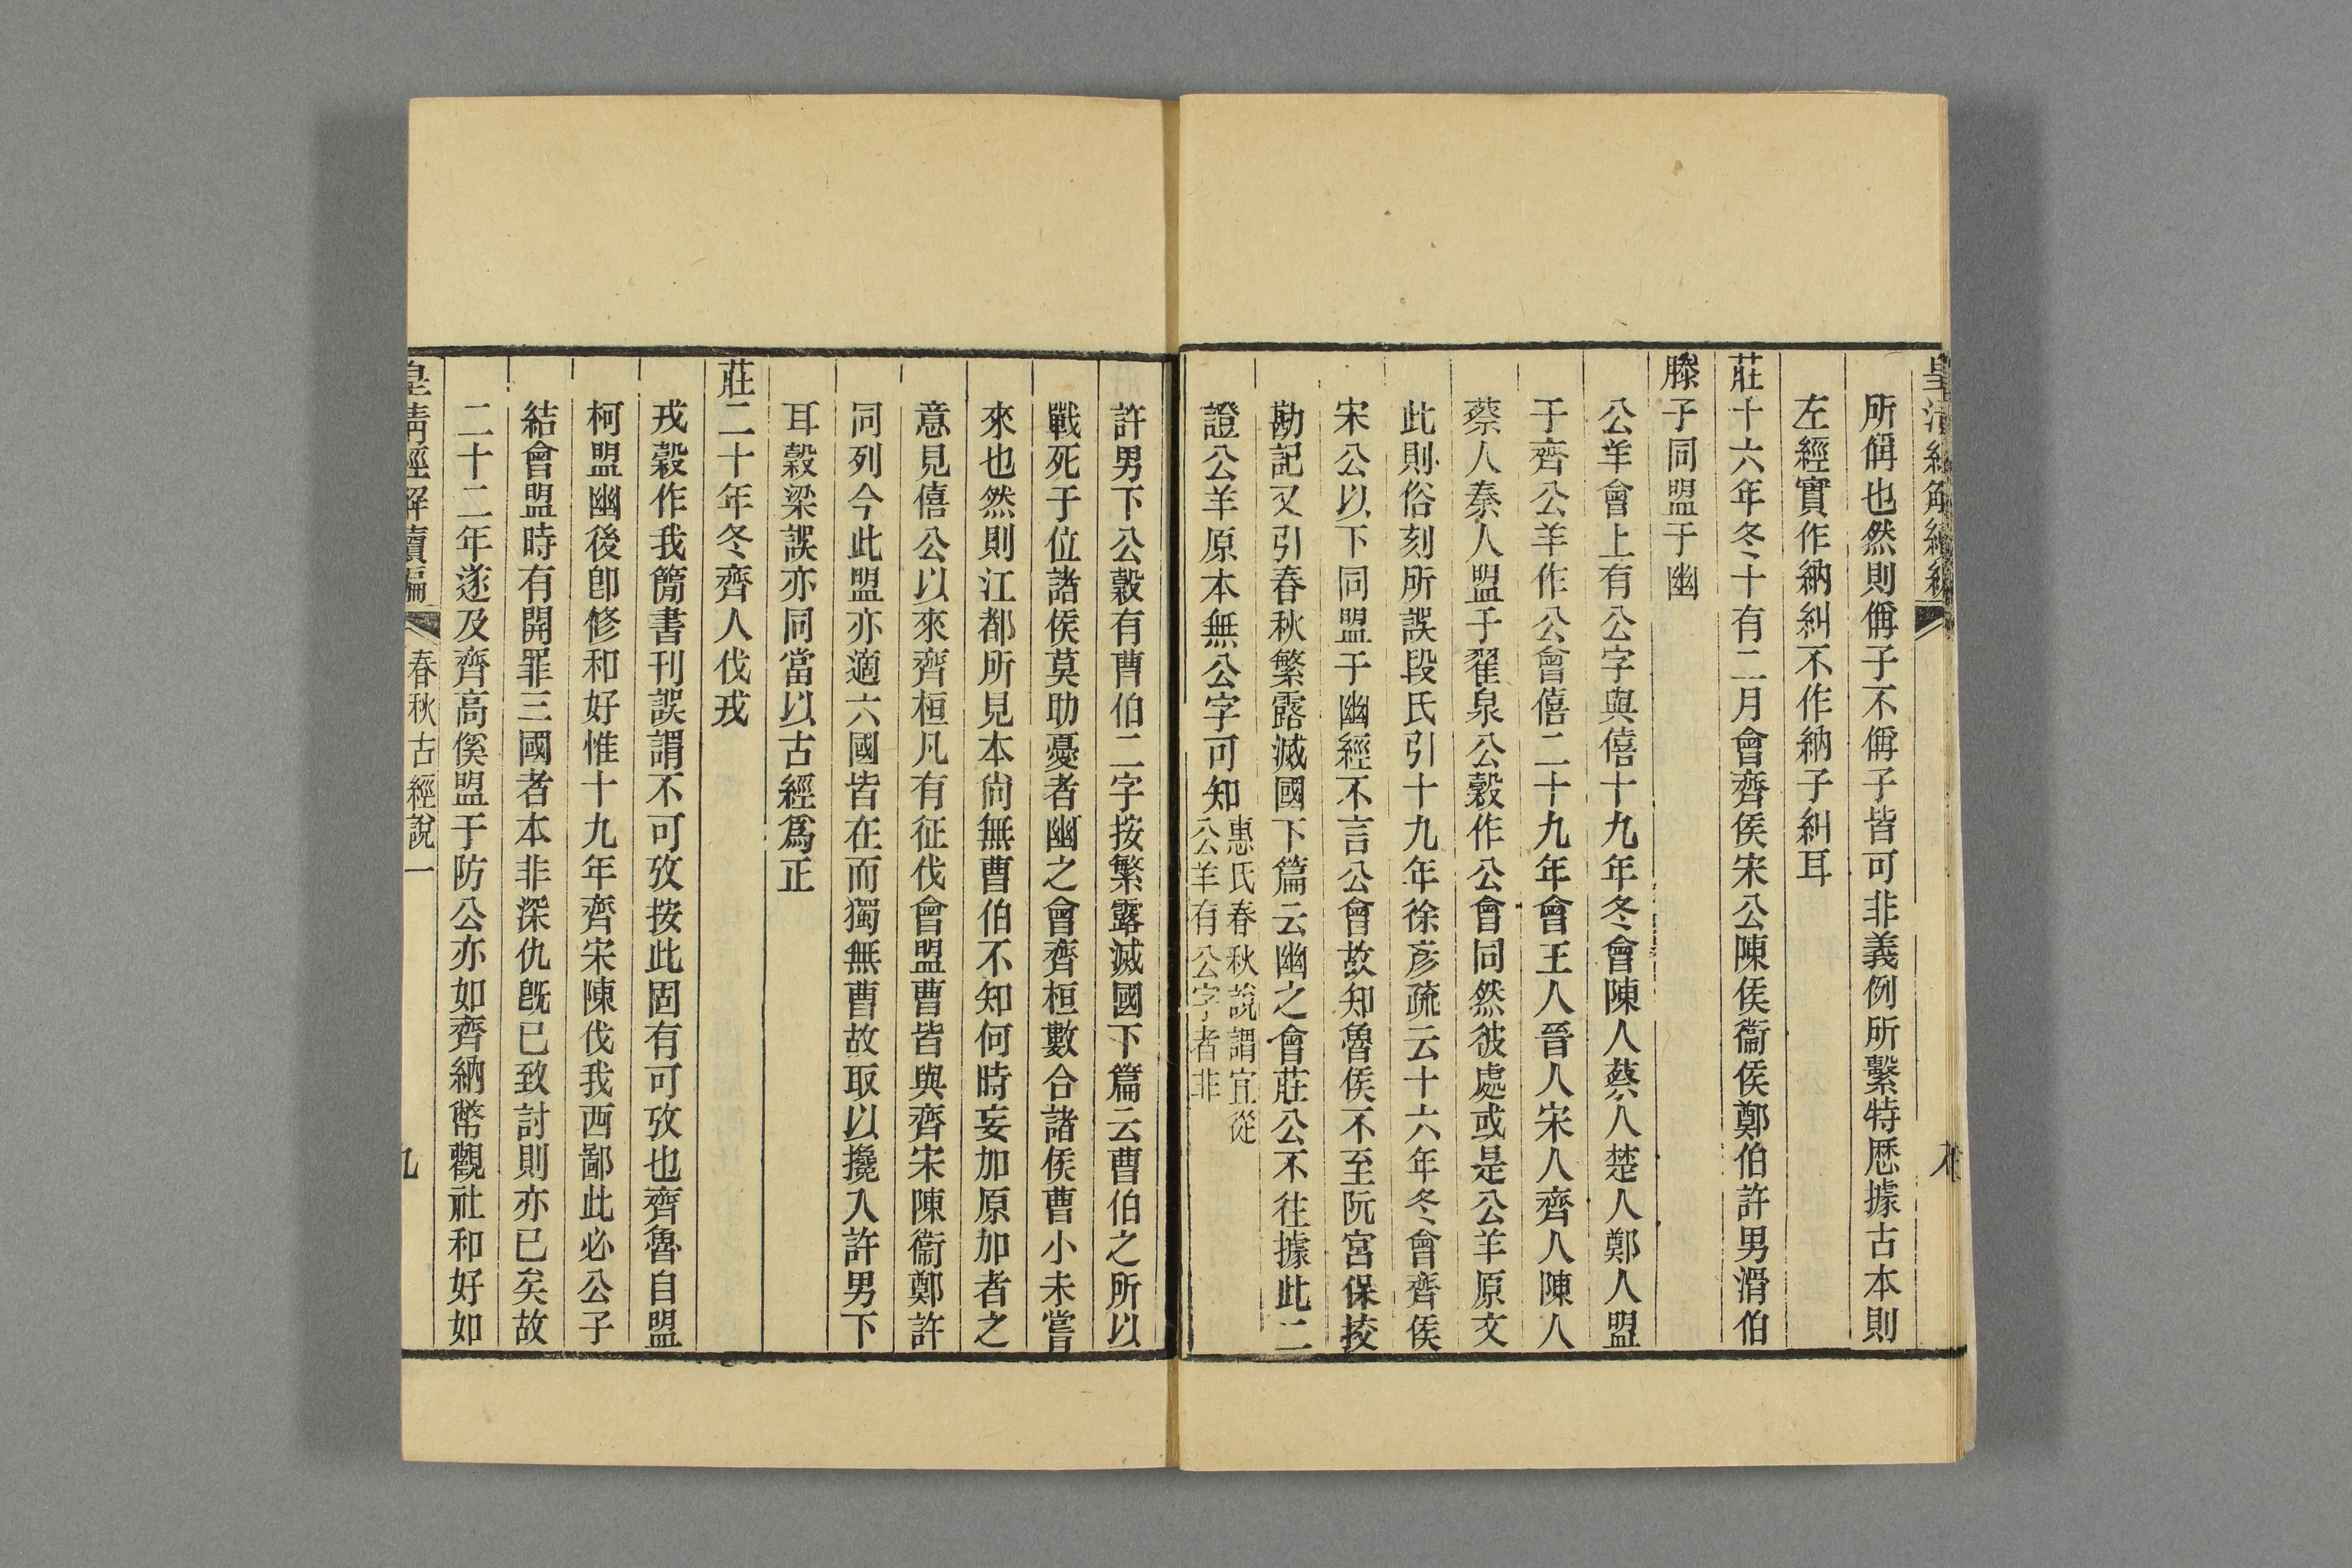 所偁也然則偁子不偁子皆可非義例所繫特厯據古本則
左經實作納糾不作納子糾耳
莊十六年冬十有二月會齊侯宋公陳侯衞侯鄭伯許男滑伯
滕子同盟于幽
公羊會上有公字與僖十九年冬會陳人蔡人楚人鄭人盟
于齊公羊作公會僖二十九年會王人晉人宋人齊人陳人
蔡人秦人盟于翟泉公穀作公會同然彼處或是公羊原文
此則俗刻所誤段氏引十九年徐彥疏云十六年冬會齊侯
宋公以下同盟于幽經不言公會故知魯侯不至阮宮保挍
勘記又引春秋繁露滅國下篇云幽之會莊公不往據此二
證公羊原本無公字可知惠氏春秋說謂宜從
公羊有公字者非
許男下公穀有曹伯二字按繁露滅國下篇云曹伯之所以
戰死于位諸侯莫助憂者幽之會齊桓數合諸侯曹小未嘗
來也然則江都所見本尙無曹伯不知何時妄加原加者之
意見僖公以來齊桓凡有征伐會盟曹皆與齊宋陳衞鄭許
同列今此盟亦適六國皆在而獨無曹故取以攙入許男下
耳穀梁誤亦同當以古經爲正
莊二十年冬齊人伐戎
戎穀作我簡書刊誤謂不可攷按此固有可攷也齊魯自盟
柯盟幽後卽修和好惟十九年齊宋陳伐我西鄙此必公子
結會盟時有開罪三國者本非深仇旣已致討則亦已矣故
二十二年遂及齊高傒盟于防公亦如齊納幣觀社和好如
皇淸經解續編 春秋古經說一 九